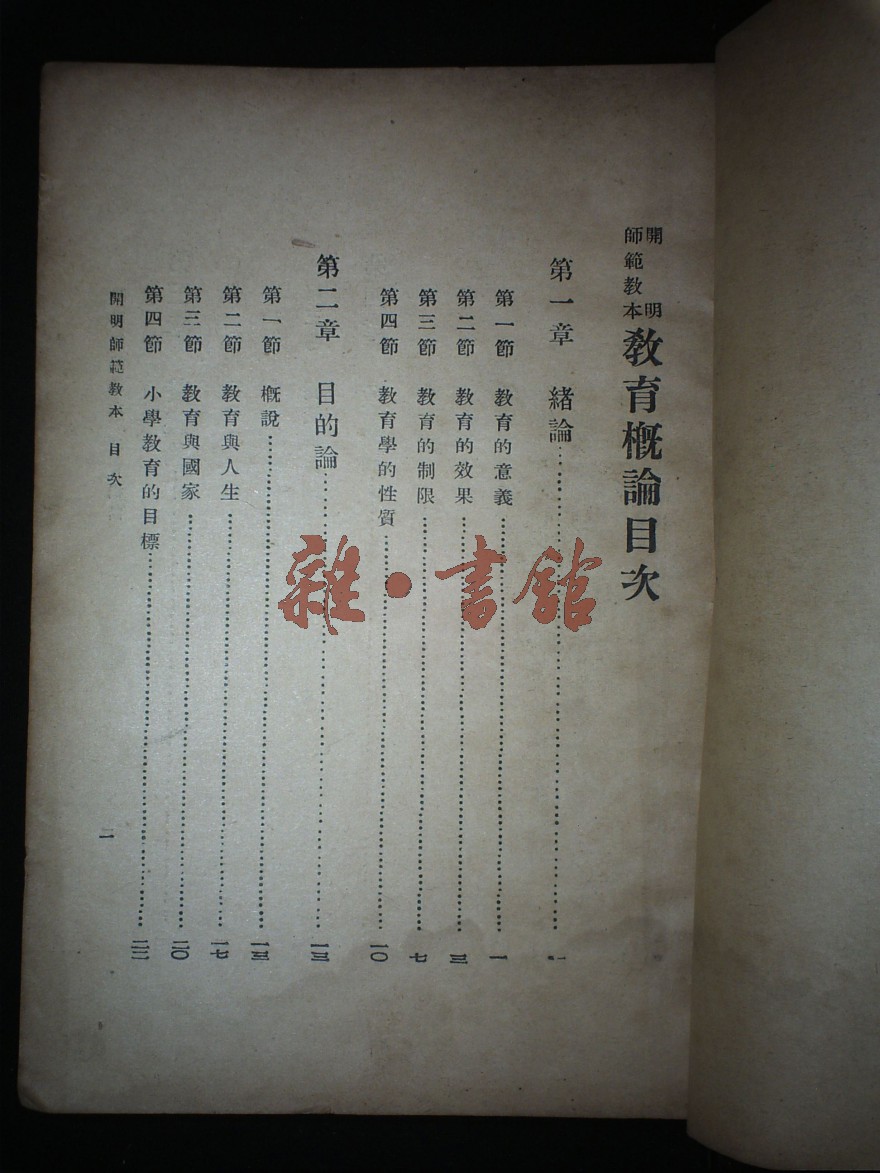 開明
師範教本
教育概論目次
第一章 緒論……一
第一節 教育的意義……一
第二節 教育的效果……三
第三節 教育的制限……七
第四節 教育學的性質……一〇
第二章 目的論……一三
第一節 概說……一三
第二節 教育與人生……一七
第三節 教育與國家……二〇
第四節 小學教育的目標……
開明師範教本 目次
雜·書館